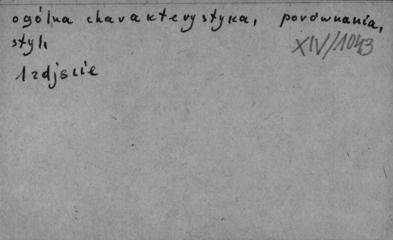 ogólna charakterystyka, porównania,
styl
XIV/1043
1 zdjęcie